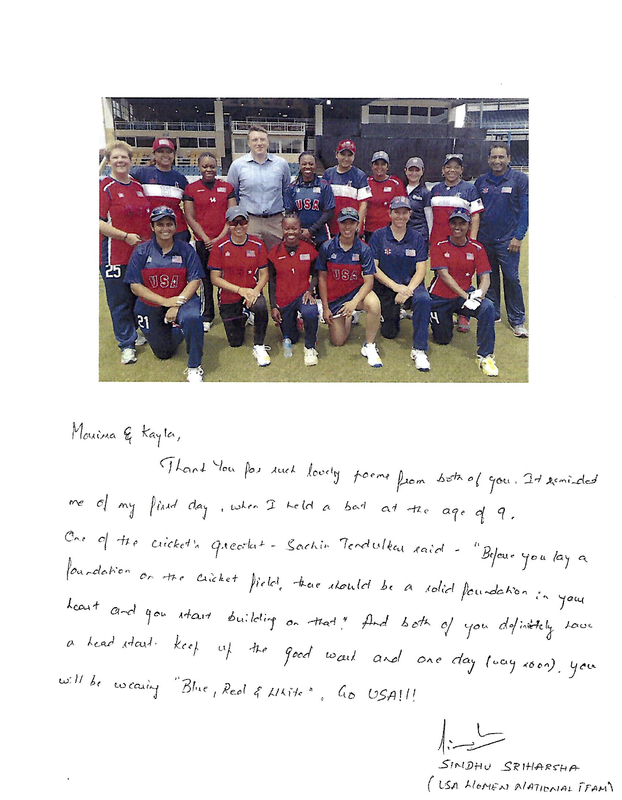 USA
14
USA
25
USA
21
1
USA
4
Monima & Kayla,
Thank You for such lovely poems from both of you. It reminded
me of my first day, when I held a bat at the age of 9.
One of the cricket's greatest - Sachin Tendulkar said - "Before you lay a
foundation on the cricket field, there should be a solid foundation in your
heart and you start building on that". And both of you definitely have
a head start. Keep up the good work and one day (very soon), you
will be wearing "Blue, Red & White". Go USA!!!
SINDHU SRIHARSHA
(USA WOMEN NATIONAL TEAM)